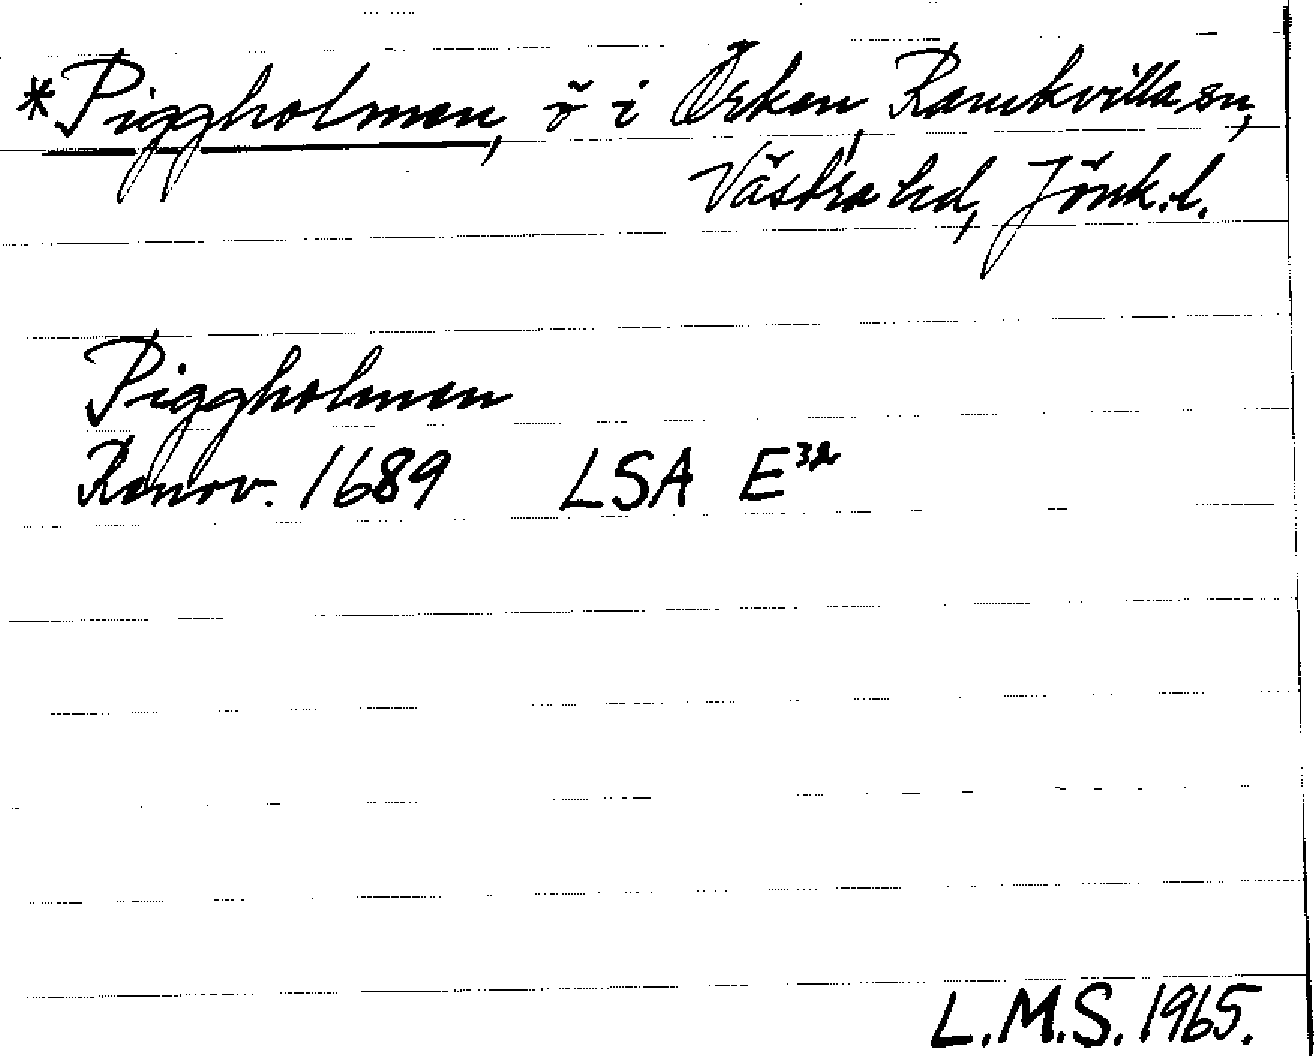 *Piggholmen, ö i Örken, Ramkvilla sn,
Västra hd, Jönk.l.
Piggholmen
Renov. 1689 LSA E³²
L.M.S. 1965.